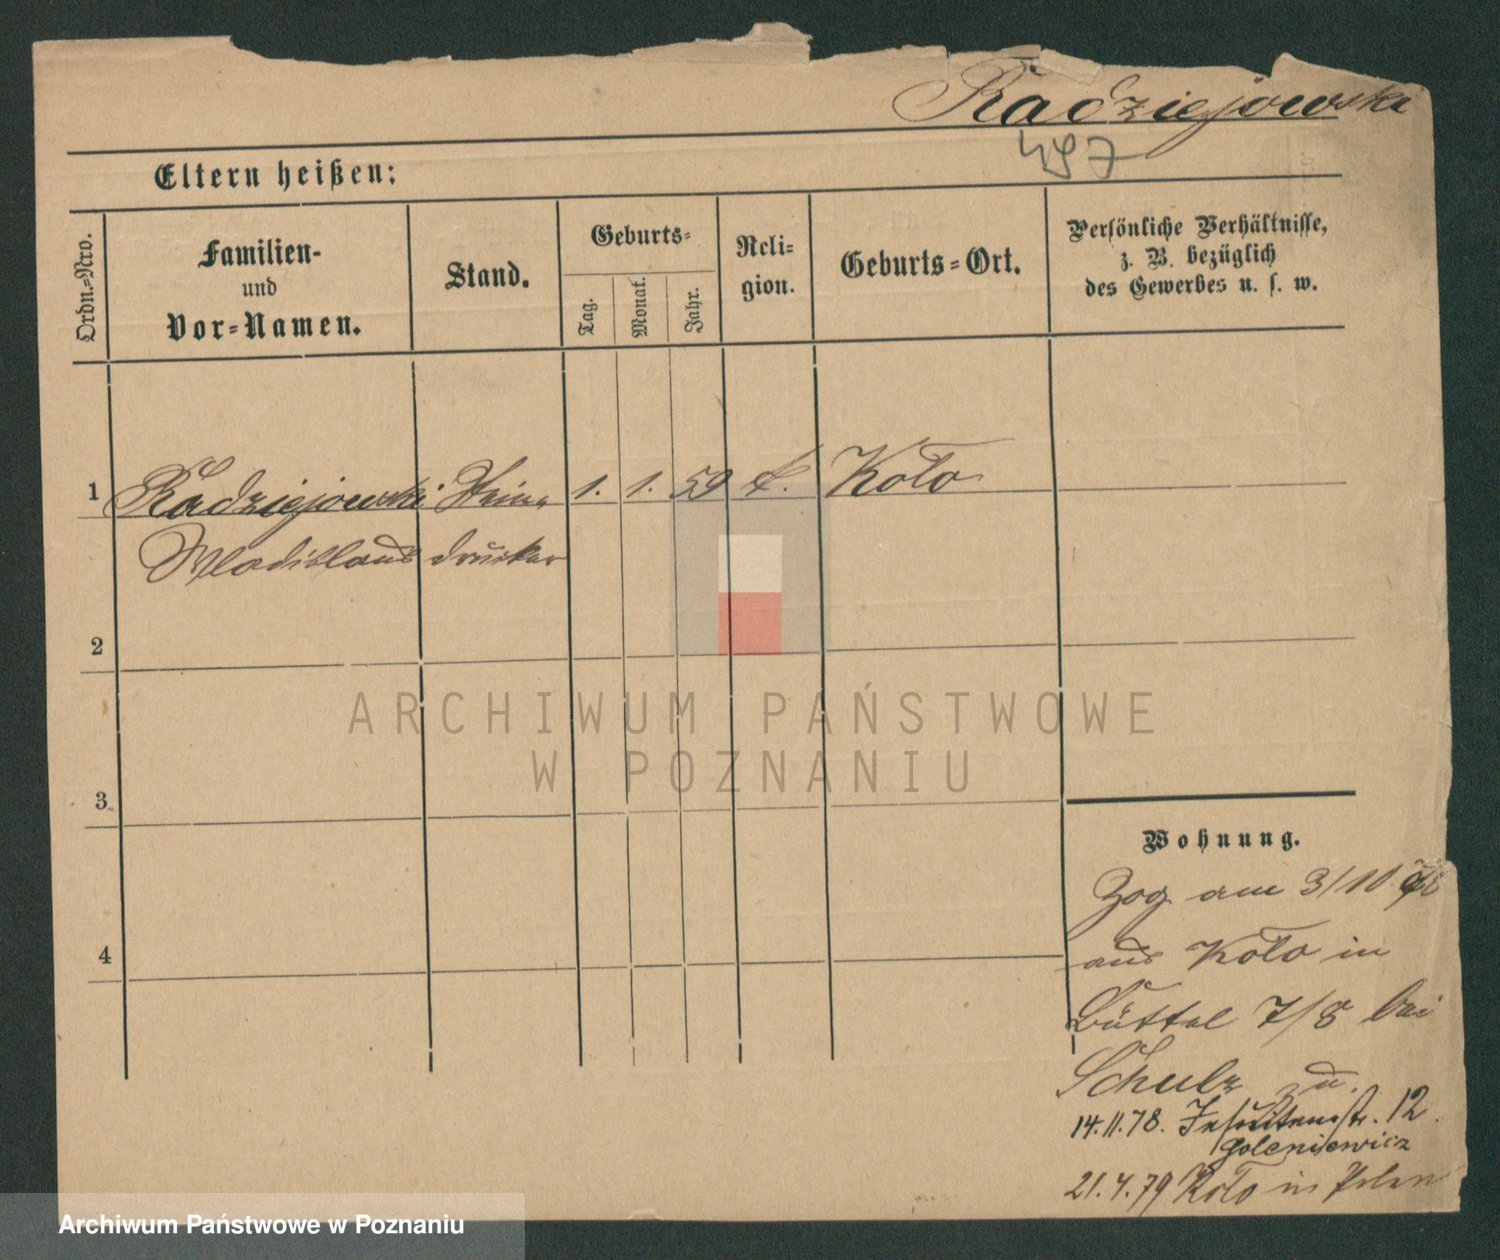 Radziejowski
497
Eltern heißen:
Ordn.-Nro.
Familien-
und
Vor-Namen.
Stand.
Geburts-
Tag.
Monat.
Jahr.
Reli-
gion.
Geburts-Ort.
Persönliche Verhältnisse,
z. B. bezüglich
des Gewerbes u. s. w.
1 Radziejowski Stein- 1. 1. 59 k. Koło
Wladislaus drucker
2
3
4
Wohnung.
Zog am 3/10 78
aus Koło in
Büttel 7/8 bei
Schulz zu.
14.11.78. Jesuitenstr. 12.
Goleniewicz
21.4.79 Koło in Polen
ARCHIWUM PAŃSTWOWE
W POZNANIU
Archiwum Państwowe w Poznaniu